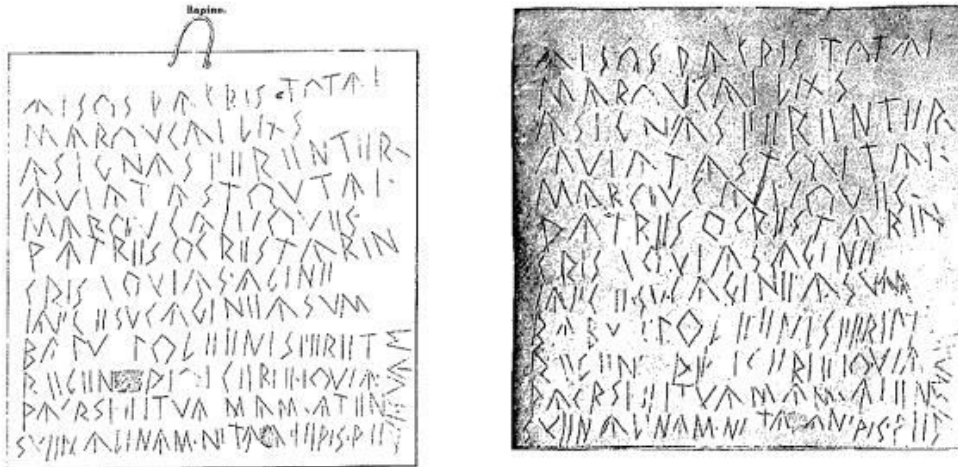 Rapino.
AISOS PACRIS TOTAI
MAROVCAI LIXS
ASIGNAS FERENTER
AVIATAS TOVTAI
MAROVCAI IOVES
PATRES OCRES TARIN
CRIS IOVIAS AGINE
IAFC ESVC AGINE ASVM
BABV POLEENIS FERET
REGEN CERIE IOVIA
PACRSI EITVAM AM ATEN
SVENALINAM NI TA NIPIS PEDI
AISOS PACRIS TOTAI
MAROVCAI LIXS
ASIGNAS FERENTER
AVIATAS TOVTAI
MAROVCAI IOVES
PATRES OCRES TARIN
CRIS IOVIAS AGINE
IAFC ESVC AGINE ASVM
BABV POLEENIS FERET
REGEN CERIE IOVIA
PACRSI EITVAM AM ATEN
SVENALINAM NI TA NIPIS PEDI